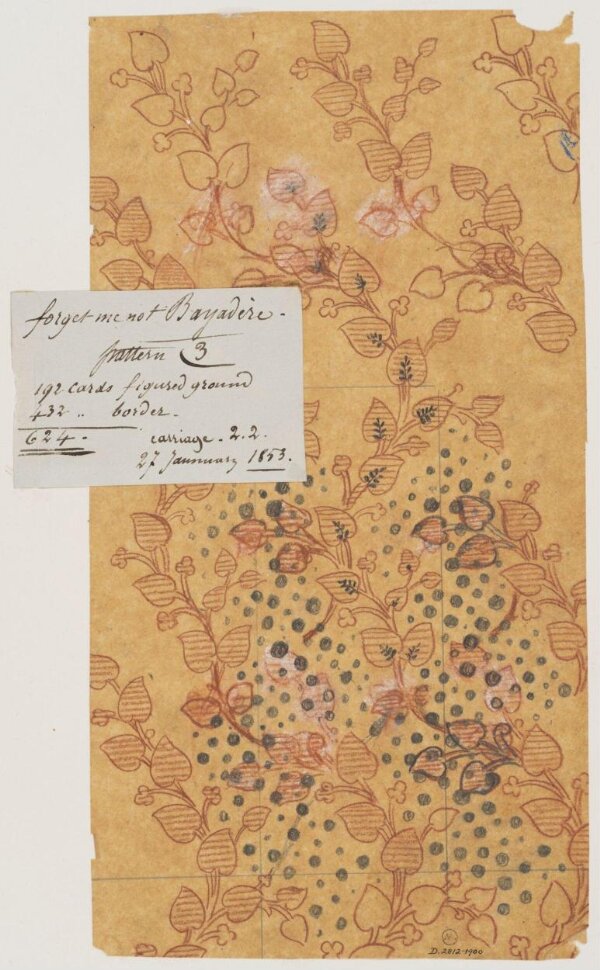 forget me not Bayadère.
pattern 3
192 cards figured ground
432 .. border.
624.
carriage. 2.2.
27 Jannuary 1853.
D.2812-1900